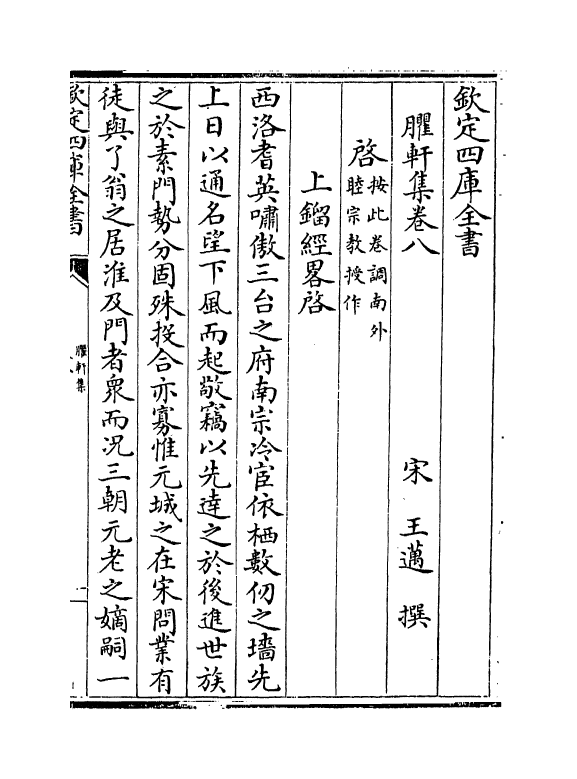 欽定四庫全書
臞軒集卷八
宋 王邁 撰
啓 按此卷調南外
睦宗教授作
上鎦經畧啓
西洛耆英嘯傲三台之府南宗冷宦依栖數仞之墻先
上日以通名望下風而起敬竊以先達之於後進世族
之於素門勢分固殊投合亦寡惟元城之在宋問業有
徒與了翁之居淮及門者衆而況三朝元老之嫡嗣一
欽定四庫全書
臞軒集
卷八
一